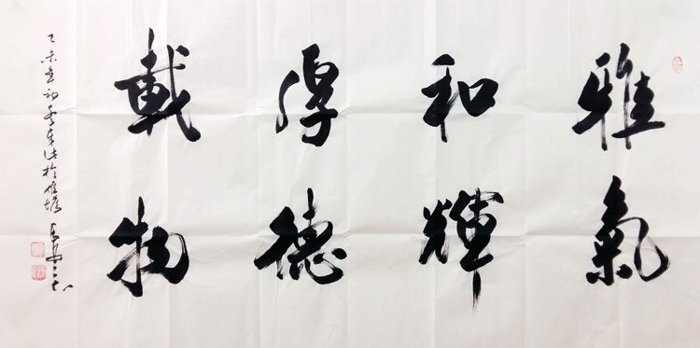 雅氣
和輝
厚德
載物
乙未年初